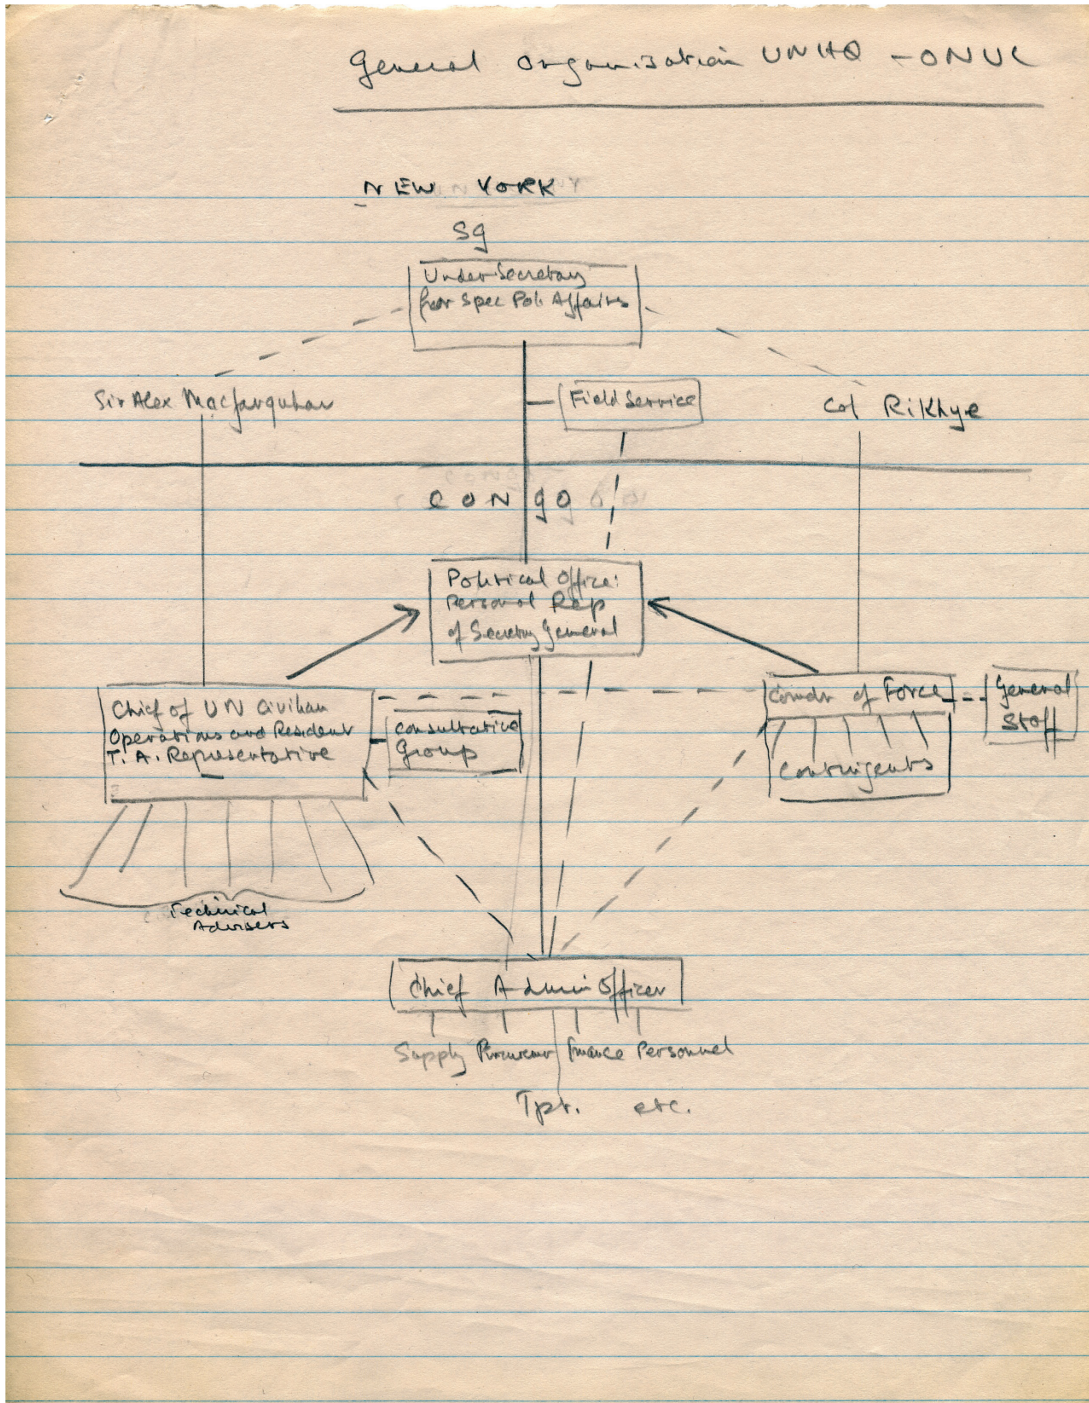 General Organisation UNHQ - ONUC
NEW YORK
SG
Under-Secretary
for Spec Pol Affairs
Sir Alex MacFarquhar
Field Service
Col Rikhye
CONGO
Political Office:
Personal Rep
of Secretary General
Chief of UN Civilian
Operations and Resident
T. A. Representative
Consultative
Group
Comdr of Force
General
Staff
Contingents
Technical
Advisers
Chief Admin Officer
Supply Finance Personnel
Tpt. etc.